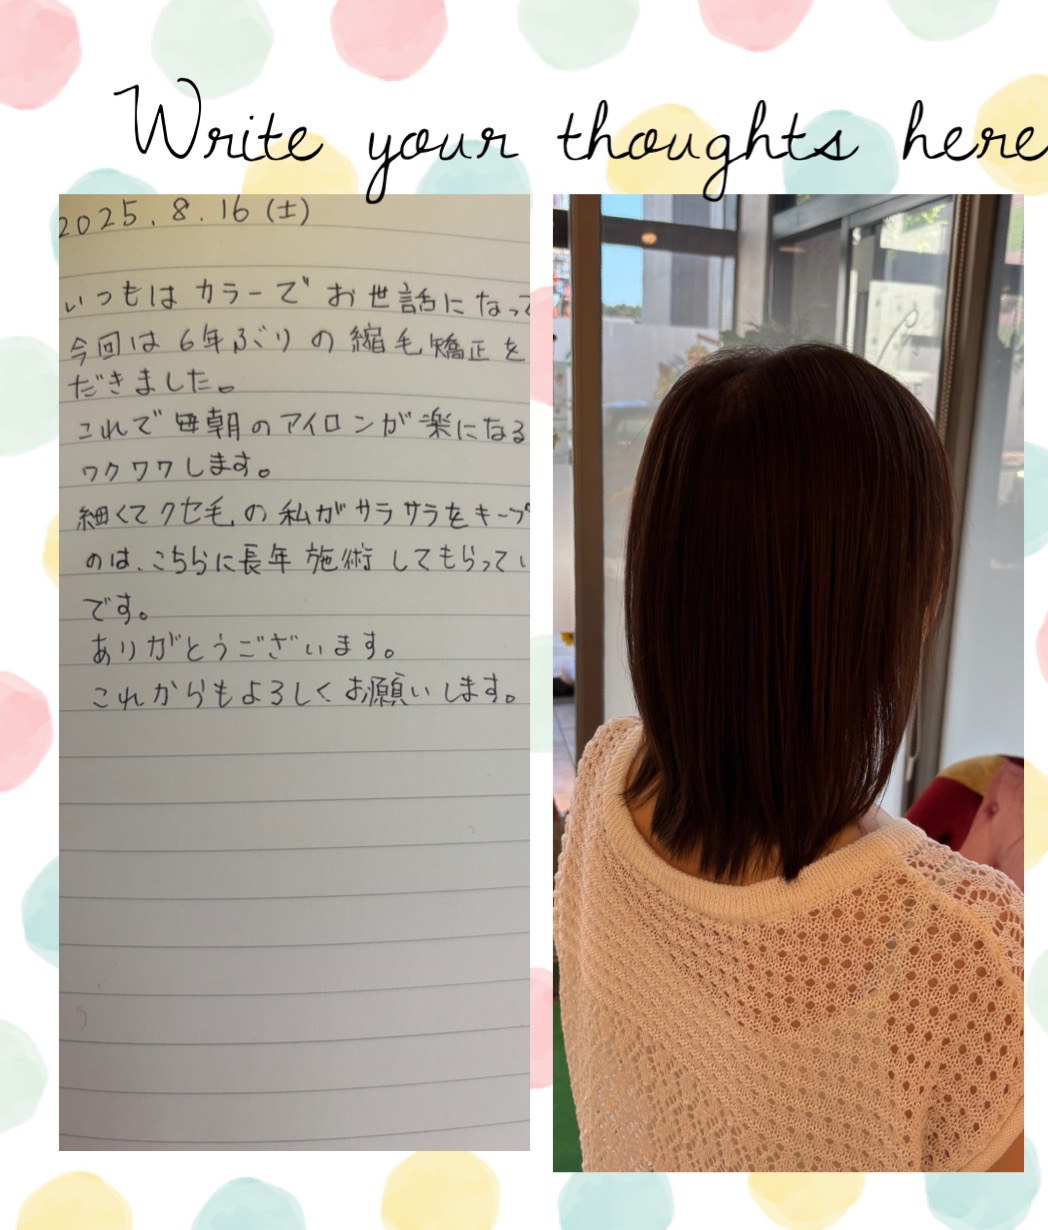 Write your thoughts here
2025.8.16(土)
いつもはカラーでお世話になって
今回は6年ぶりの縮毛矯正を
だきました。
これで毎朝のアイロンが楽になる
ワクワクします。
細くてクセ毛の私がサラサラをキープ
のは、こちらに長年施術してもらってい
です。
ありがとうございます。
これからもよろしくお願いします。